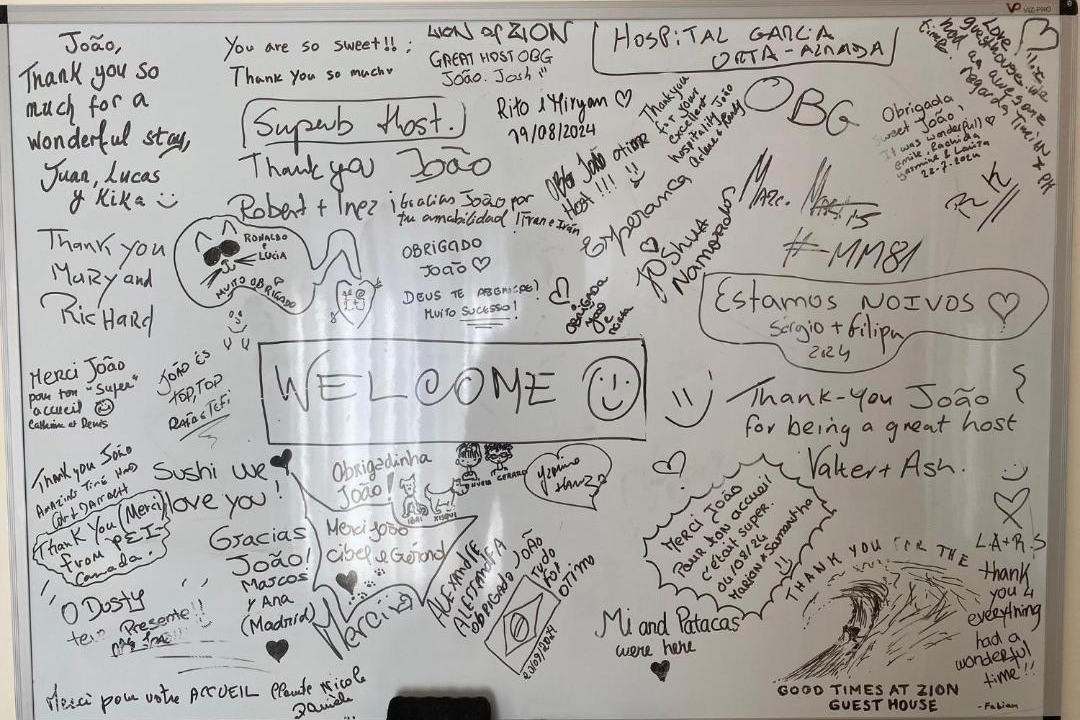 VIZ-PRO
João,
Thank you so
much for a
wonderful stay,
Juan, Lucas
y Kika
You are so sweet!!
Thank you so much
LION OF ZION
GREAT HOST OBG
João. Josh
HOSPITAL GARCIA
ORTA - ALMADA
Love
guesthouse. we
had an awesome
time.
regards, Tim
Superb Host.
Thank you João
Robert + Inez
Rito e Miryam ♡
19/08/2024
Thank you
for your
excellent
hospitality João
OBG
Obrigada
Sweet João,
It was wonderful ♡
emilie, Rachida
yasmine & Louiza
22-7.2024
OBG João otimo
Host !!!
¡Gracias João por
tu amabilidad! Fran e Iván
Esperança
♡
JOSHUA
Namorados
Marc.
#-MM81
RONALDO
E
LUCIA
MUITO OBRIGADO
OBRIGADO
João ♡
DEUS TE ABENÇOE!
MUITO SUCESSO!
obrigada
João
e
Thank you
Mary and
Richard
Estamos NOIVOS ♡
Sérgio + Filipa
2024
Merci João
pour ton "super"
accueil
Catherine et Denis
JOÃO ÉS
TOP, TOP
WELCOME
Thank-You João
for being a great host
Valter + Ash.
Thank you João
AMAZING TIME HAD
Sushi we
love you!
Thank You (Merci)
from P.E.I
Canada!
Obrigadinha
João!
NURIA
GERARD
IBAI
XISQUI
Merci João
Cibel e Gérard
Merci
Gracias
João!
Marcos
y Ana
(Madrid)
O DUSTY
teve Presente!!
ALEXANDRE
ALESSANDRA
OBRIGADO JOÃO
TUDO
FOI
OTIMO
20/09/2024
Merci João
Pour bon accueil
c'était super.
04/08/24
Marian + Samantha
Mi and Patacas
were here
THANK YOU FOR THE
GOOD TIMES AT ZION
GUEST HOUSE
- Fabian
LA + R.S
thank
you 4
everything
had a
wonderful
time!!!
Merci pour votre ACCUEIL Claude Nicole
Daniele